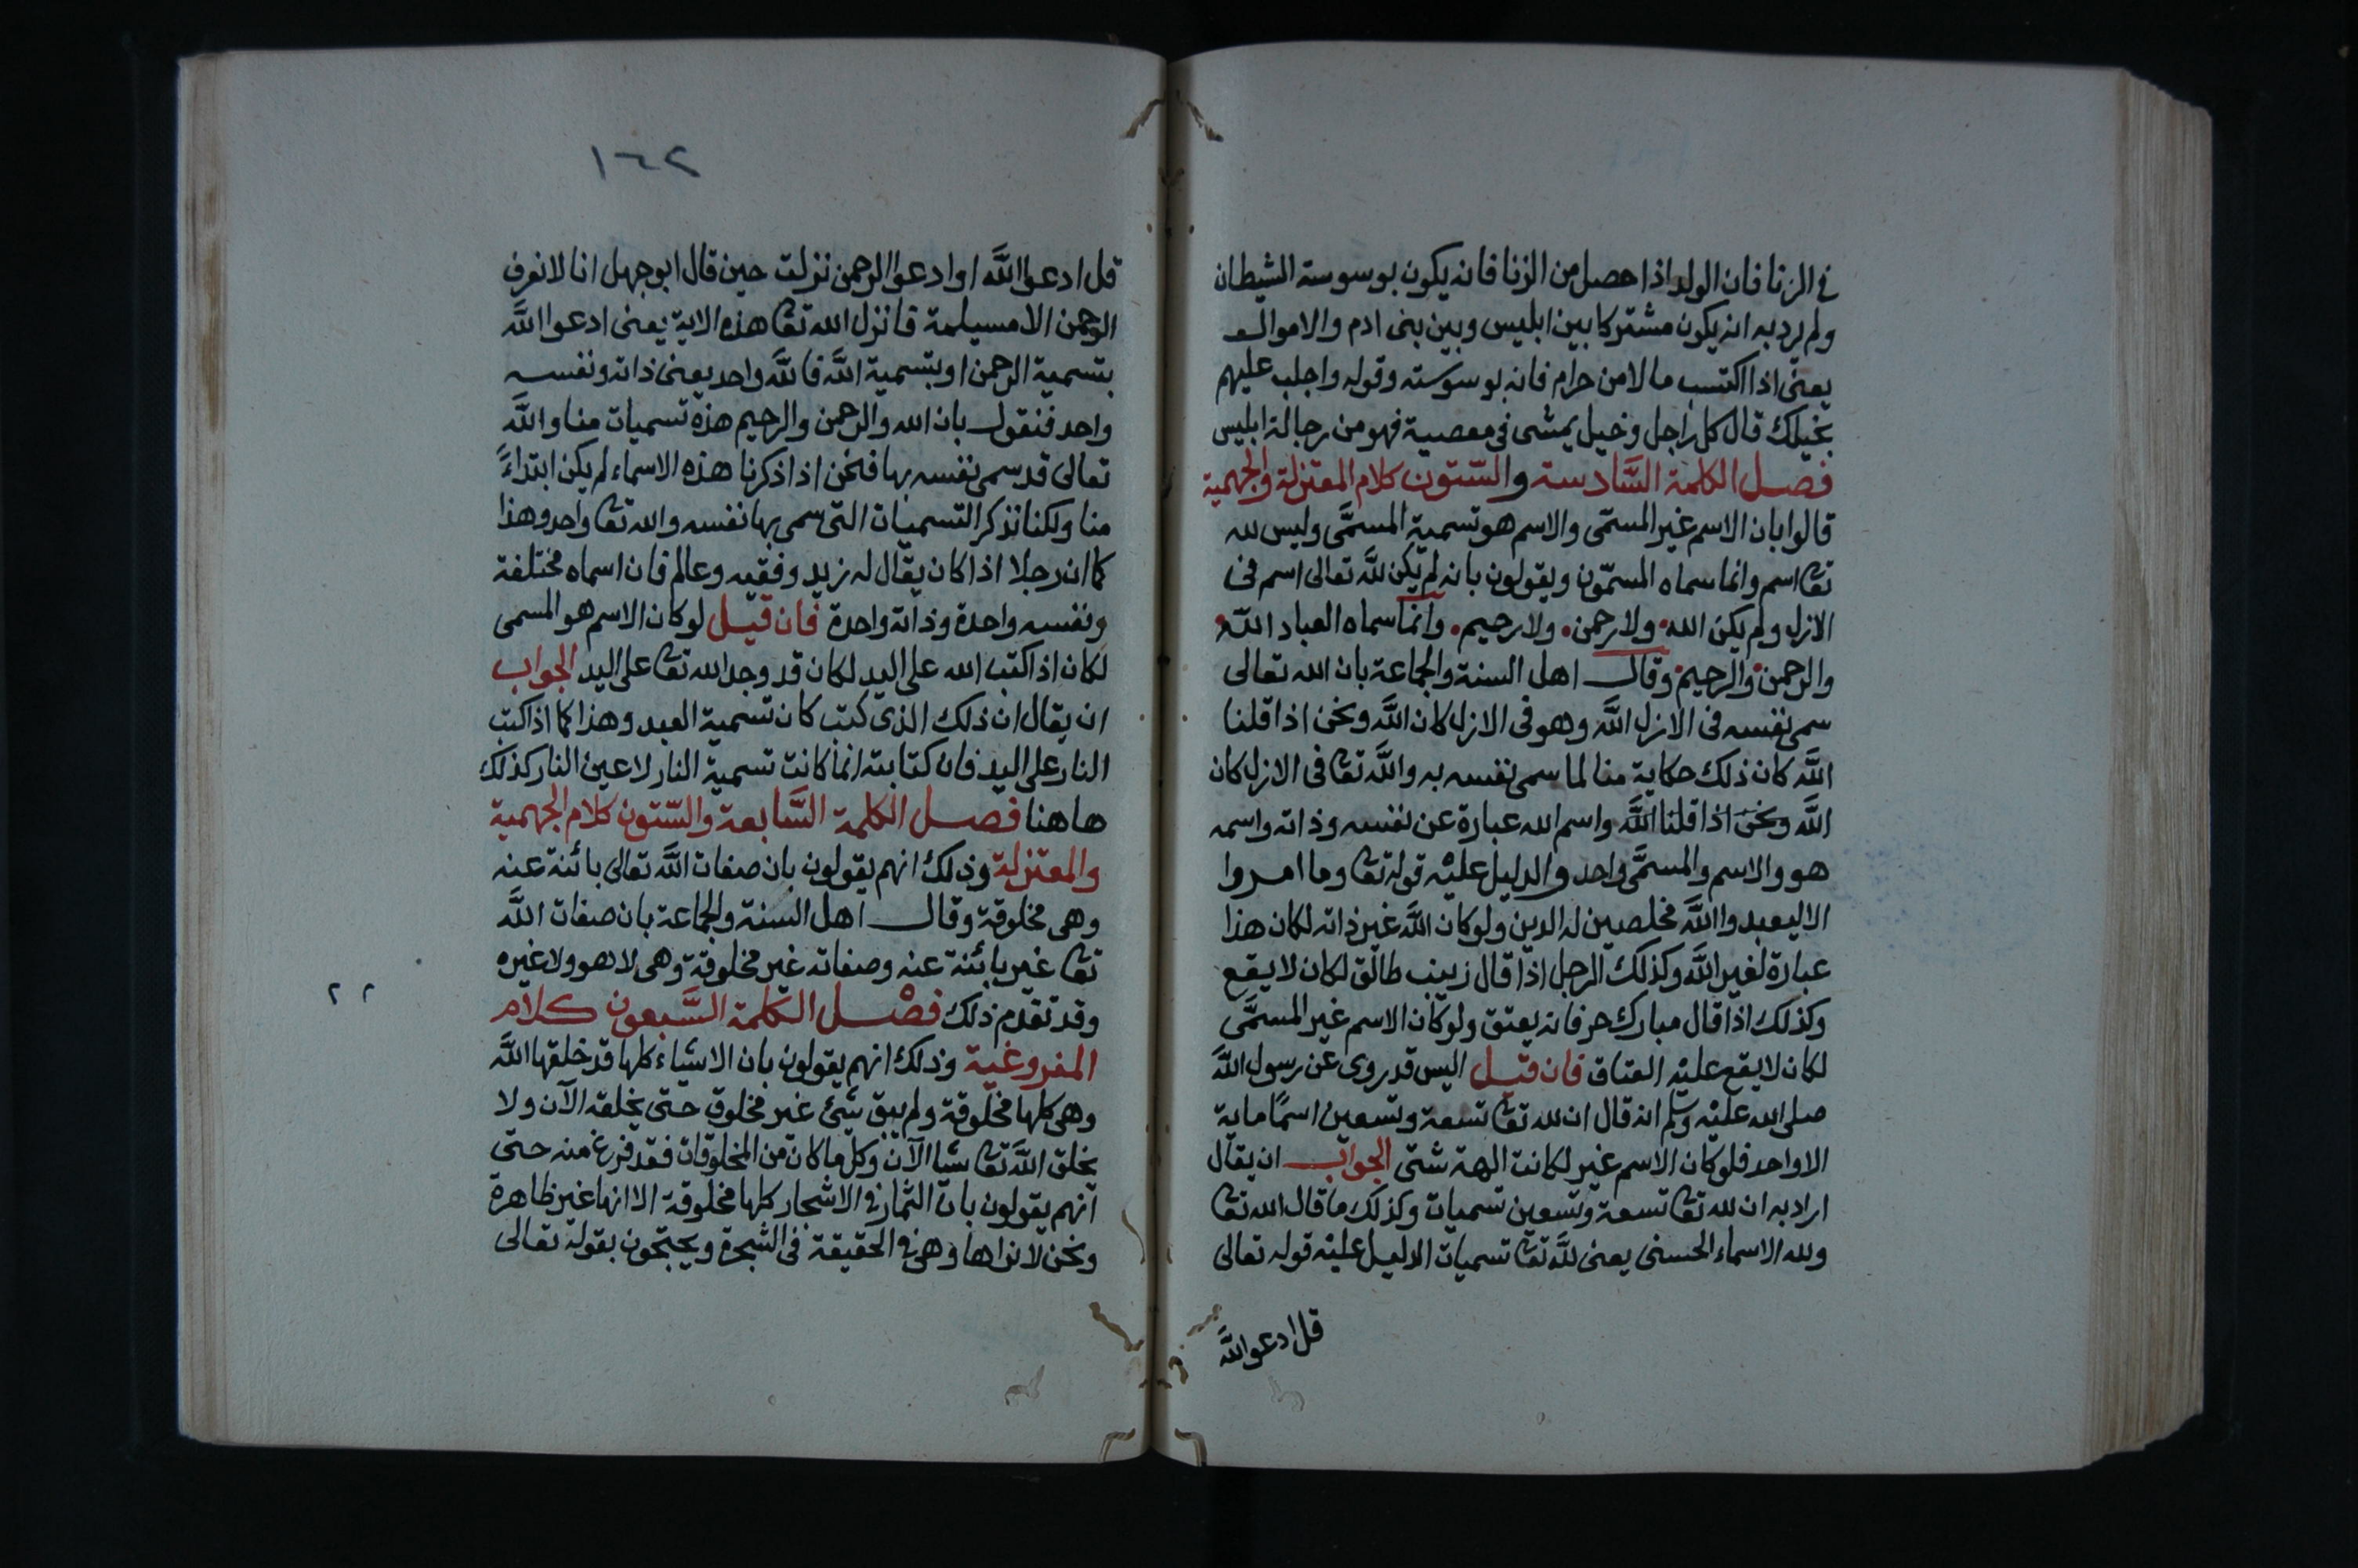 في الزنا فان الولد اذا حصل من الزنا فانه يكون بوسوسة الشيطان
ولم يرد به انه يكون مشتركا بين ابليس وبين بنى ادم والاموال
يعنى اذا اكتسب مالا من حرام فانه بوسوسته وقوله واجلب عليهم
بخيلك قال كل راجل وخيل يمشى فى معصية فهو من رجالة ابليس
فصل الكلمة السَّادسة والسّتون كلام المعتزلة والجهمية
قالوا بان الاسم غير المسمّى والاسم هو تسمية المسمَّى وليس لله
تعا اسم وانما سماه المسمّون ويقولون بانه لم يكن للَّه تعالى اسم فى
الازل ولم يكن الله ولا رحمن ولا رحيم وانما سماه العباد اللَّه
والرحمن والرحيم وقال اهل السنة والجماعة بان الله تعالى
سمى نفسه فى الازل اللَّه وهو فى الازل كان اللَّه ونحن اذا قلنا
اللَّه كان ذلك حكاية منا لما سمى نفسه به واللَّه تعا فى الازل كان
اللَّه ونحن اذا قلنا اللَّه واسم الله عبارة عن نفسه وذاته واسمه
هو والاسم والمسمَّى واحد والدليل عليْه قوله تعا وما امروا
الا ليعبدوا اللَّه مخلصين له الدين ولو كان اللَّه غير ذاته لكان هذا
عبارة لغير اللَّه وكذلك الرجل اذا قال زينب طالق لكان لا يقع
وكذلك اذا قال مبارك حر فانه يعتق ولو كان الاسم غير المسمَّى
لكان لا يقع عليْه العتاق فان قيل اليس قد روى عن رسول اللَّه
صلى الله عليْه وسلم انه قال ان لله تعا تسعة وتسعين اسمًا ماية
الا واحد فلو كان الاسم غير لكانت الهة شتى الجواب ان يقال
اراد به ان لله تعا تسعة وتسعين تسميات وكذلك ما قال الله تعا
ولله الاسماء الحسنى يعنى للَّه تعا تسميات الدليل عليْه قوله تعالى
قل ادعو اللَّه
١٦٢
قل ادعوا اللَّه او ادعوا الرحمن نزلت حين قال ابو جهل انا لا نعرف
الرحمن الا مسيلمة فانزل الله تعا هذه الاية يعنى ادعوا اللَّه
بتسمية الرحمن او بتسمية اللَّه فاللَّه واحد يعنى ذاته ونفسه
واحد فنقول بان الله والرحمن والرحيم هذه تسميات منا واللَّه
تعالى قد سمى نفسه بها فنحن اذا ذكرنا هذه الاسماء لم يكن ابتداءً
منا ولكنا نذكر التسميات التى سمى بها نفسه والله تعا واحد وهذا
كما ان رجلا اذا كان يقال له زيد وفقيه وعالم فان اسماه مختلفة
ونفسه واحدة وذاته واحدة فان قيل لو كان الاسم هو المسمى
لكان اذا كتب الله على اليد لكان قد وجد الله تعا على اليد الجواب
ان يقال ان ذلك الذى كتب كان تسمية العبد وهذا كما اذا كتب
النار على اليد فان كتابته انما كانت تسمية النار لا عين النار كذلك
ها هنا فصل الكلمة السَّابعة والسّتون كلام الجهمية
والمعتزلة وذلك انهم يقولون بان صفات اللَّه تعالى بائنة عنه
وهى مخلوقة وقال اهل السنة والجماعة بان صفات اللَّه
تعا غير بائنة عنه وصفاته غير مخلوقة وهى لا هو ولا غيره
وقد تقدم ذلك فصْل الكلمة السَّبعون كلام
المفروغية وذلك انهم يقولون بان الاشياء كلها قد خلقها اللَّه
وهى كلها مخلوقة ولم يبق شئ غير مخلوق حتى يخلقه الآن ولا
يخلق اللَّه تعا شيا الآن وكل ما كان من المخلوقات فقد فرغ منه حتى
انهم يقولون بان الثمار فى الاشجار كلها مخلوقة الا انها غير ظاهرة
ونحن لا نراها وهى فى الحقيقة فى الشجرة ويحتجون بقوله تعالى
٢ ٢